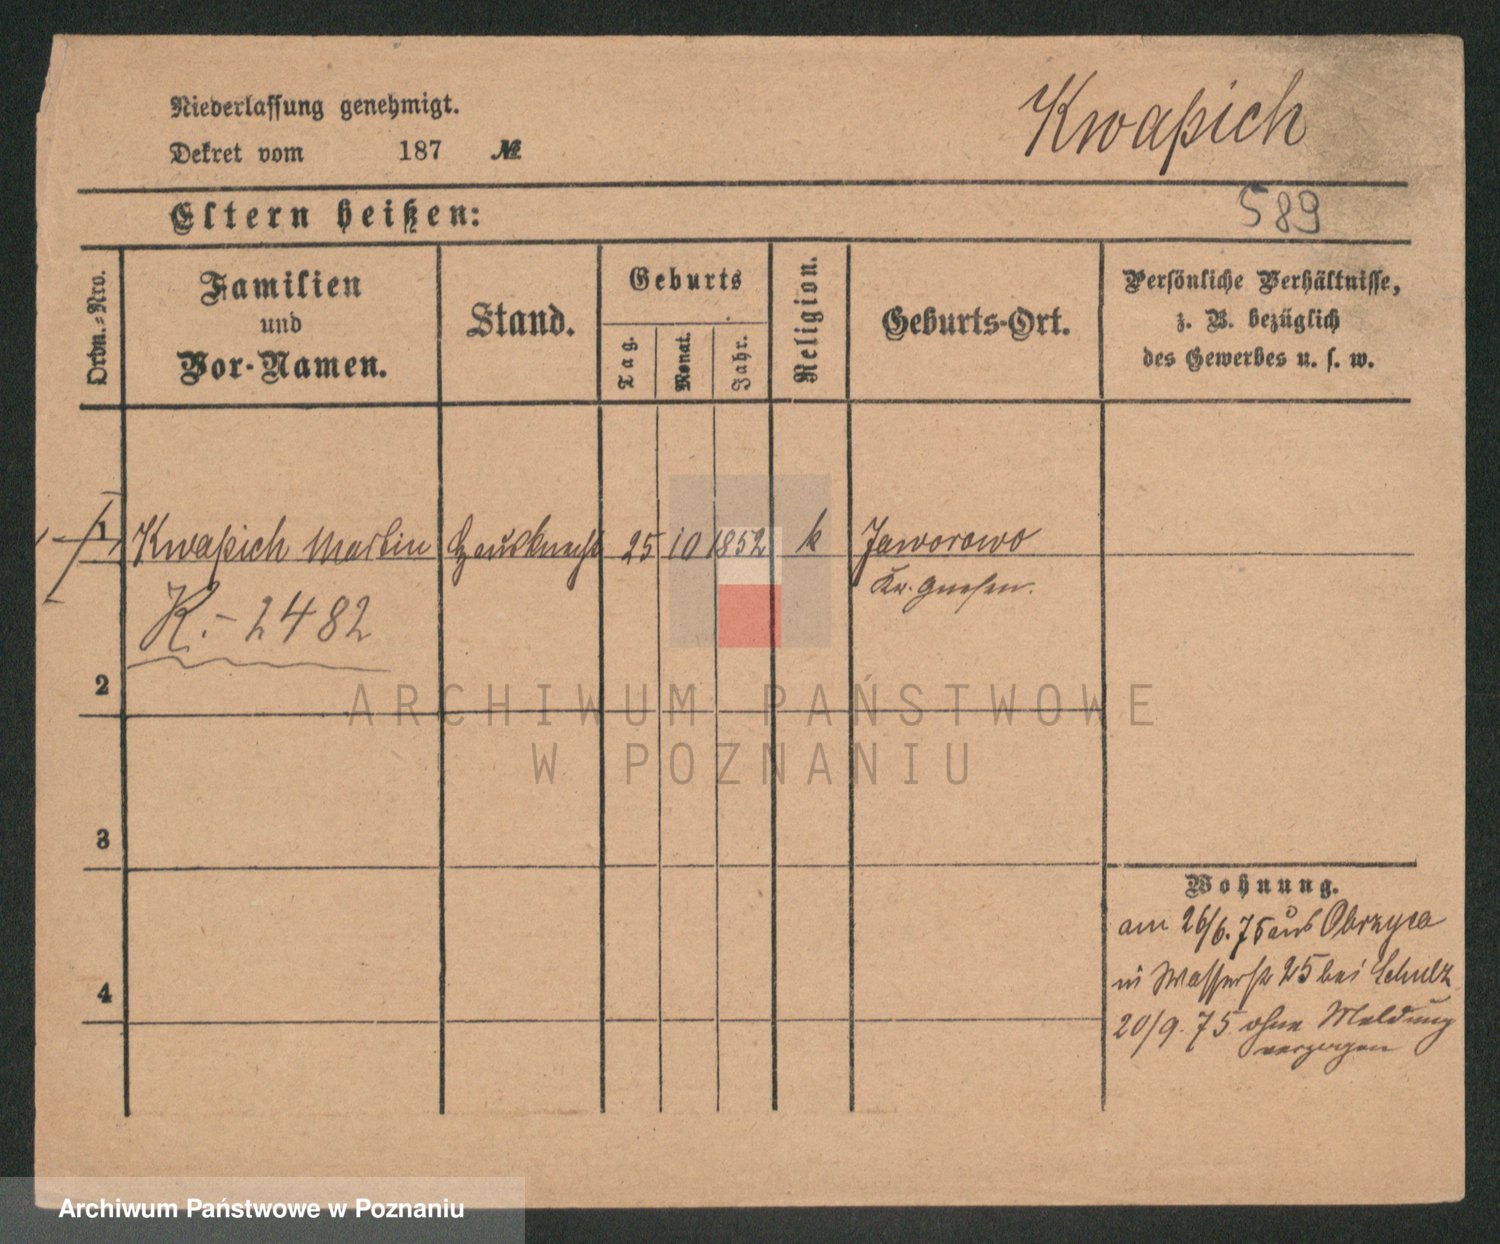 Niederlassung genehmigt.
Dekret vom 187 №
Kwaßich
Eltern heißen:
589
Ordn.-Nro.
Familien
und
Vor-Namen.
Stand.
Geburts
Tag.
Monat.
Jahr.
Religion.
Geburts-Ort.
Persönliche Verhältnisse,
z. B. bezüglich
des Gewerbes u. s. w.
1 Kwaßich Martin Hausknecht 25 10 1852 k Jaworowo
Kr. Gnesen.
K.- 2482
2
ARCHIWUM PAŃSTWOWE
W POZNANIU
3
Wohnung.
am 26/6. 75 aus Obrzyca
in Wasserstr 25 bei Schulz
4
20/9. 75 ohne Meldung
verzogen
Archiwum Państwowe w Poznaniu